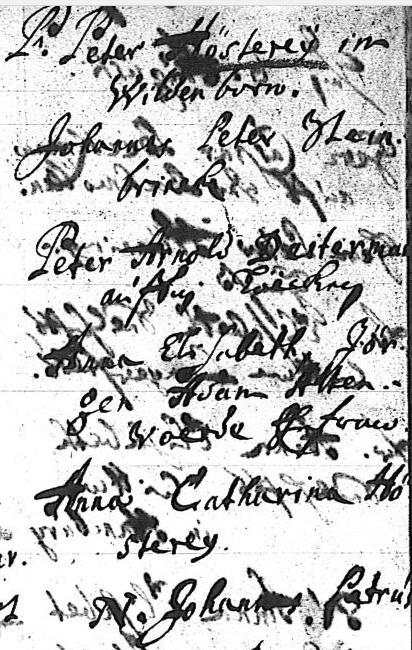 Pr. Peter Hösterey im
Wildenborn.
Johannes Peter Stein
brinck
Peter Arnold Deiterman
auffm
Anna Elisabeth, Jör-
gen Adam Alten-
woerde Eh frau.
Anna Catharina Hö
sterey.
N. Johannes Petrus